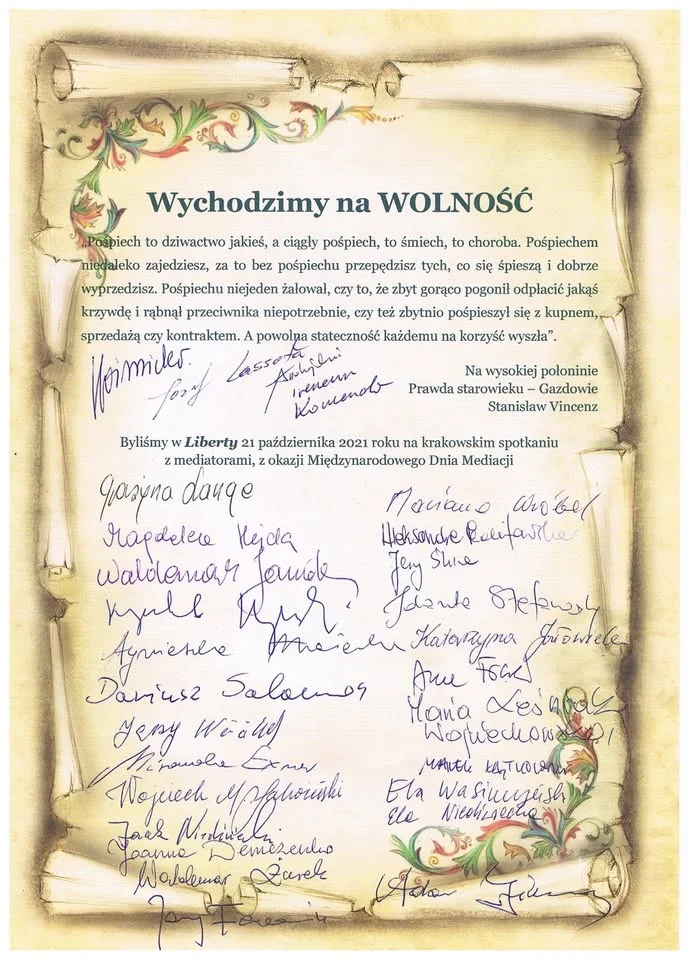 Wychodzimy na WOLNOŚĆ
„Pośpiech to dziwactwo jakieś, a ciągły pośpiech, to śmiech, to choroba. Pośpiechem
niedaleko zajedziesz, za to bez pośpiechu przepędzisz tych, co się śpieszą i dobrze
wyprzedzisz. Pośpiechu niejeden żałował, czy to, że zbyt gorąco pogonił odpłacić jakąś
krzywdę i rąbnął przeciwnika niepotrzebnie, czy też zbytnio pośpieszył się z kupnem,
sprzedażą czy kontraktem. A powolna stateczność każdemu na korzyść wyszła”.
Lassota
Komenda
Na wysokiej połoninie
Prawda starowieku – Gazdowie
Stanisław Vincenz
Byliśmy w Liberty 21 października 2021 roku na krakowskim spotkaniu
z mediatorami, z okazji Międzynarodowego Dnia Mediacji
Grażyna Lange
Magdalena Hejda
Waldemar
Agnieszka
Dariusz Salamon
Jerzy
Mirosława Exner
Wojciech
Jacek
Joanna Demczenko
Waldemar Żurek
Jerzy
Mariana Wróbel
Aleksandra
Jerzy
Jolanta
Katarzyna
Anna
Maria Leśniak
Wojciechowski
Marek
Ela
Ela
Adam